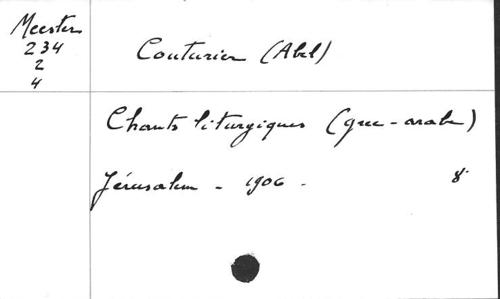 Meester
234
2
4
Couturier (Abel)
Chants liturgiques (grec-arabe)
Jérusalem - 1906 -
8°